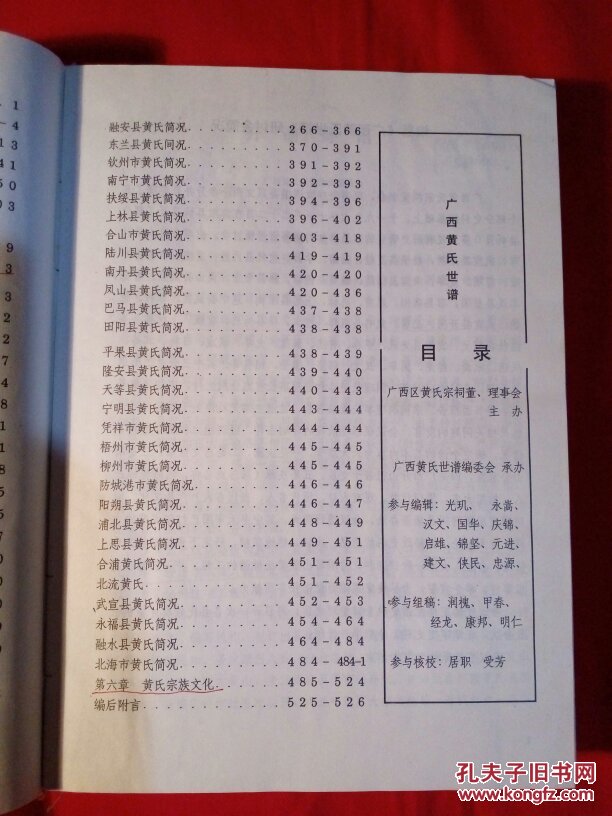 融安县黄氏简况 266-366
东兰县黄氏间况 370-391
钦州市黄氏简况 391-392
南宁市黄氏简况 392-393
扶绥县黄氏简况 394-396
上林县黄氏简况 396-402
合山市黄氏简况 403-418
陆川县黄氏简况 419-419
南丹县黄氏简况 420-420
凤山县黄氏简况 420-436
巴马县黄氏简况 437-438
田阳县黄氏简况 438-438
平果县黄氏简况 438-439
隆安县黄氏简况 439-440
天等县黄氏简况 440-443
宁明县黄氏简况 443-444
凭祥市黄氏简况 444-444
梧州市黄氏简况 445-445
柳州市黄氏简况 445-445
防城港市黄氏简况 446-446
阳朔县黄氏简况 446-447
浦北县黄氏简况 448-449
上思县黄氏简况 449-451
合浦黄氏简况 451-451
北流黄氏 451-452
武宣县黄氏简况 452-453
永福县黄氏简况 454-464
融水县黄氏简况 464-484
北海市黄氏简况 484-484-1
第六章 黄氏宗族文化 485-524
编后附言 525-526
广西黄氏世谱
目 录
广西区黄氏宗祠董、理事会
主 办
广西黄氏世谱编委会 承办
参与编辑：光玑、 永嵩、
汉文、国华、庆锦、
启雄、锦坚、元进、
建文、侠民、忠源、
参与组稿：润槐、甲春、
经龙、康邦、明仁
参与核校：居职 受芳
孔夫子旧书网
www.kongfz.com